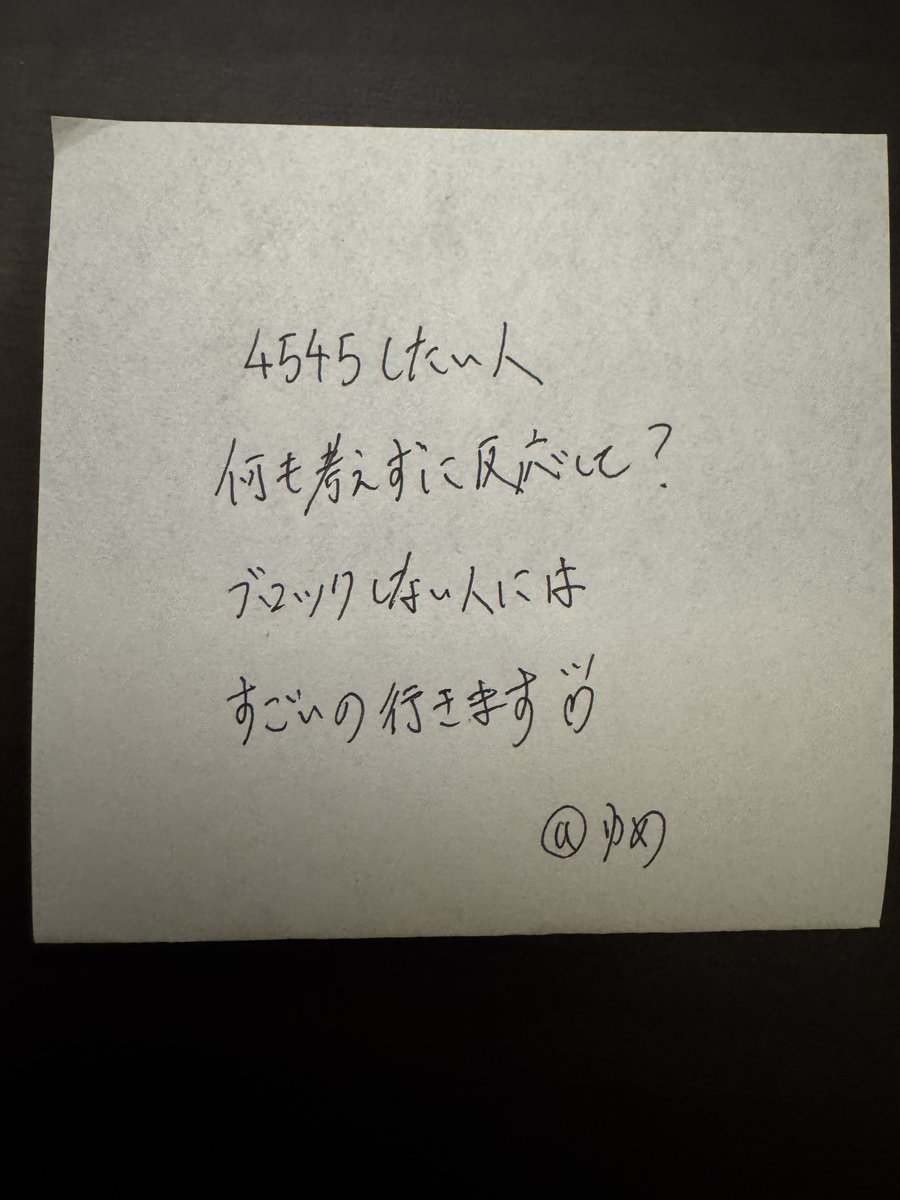 4545したい人
何も考えずに反応して？
ブロックしない人には
すごいの行きます
@ゆめ